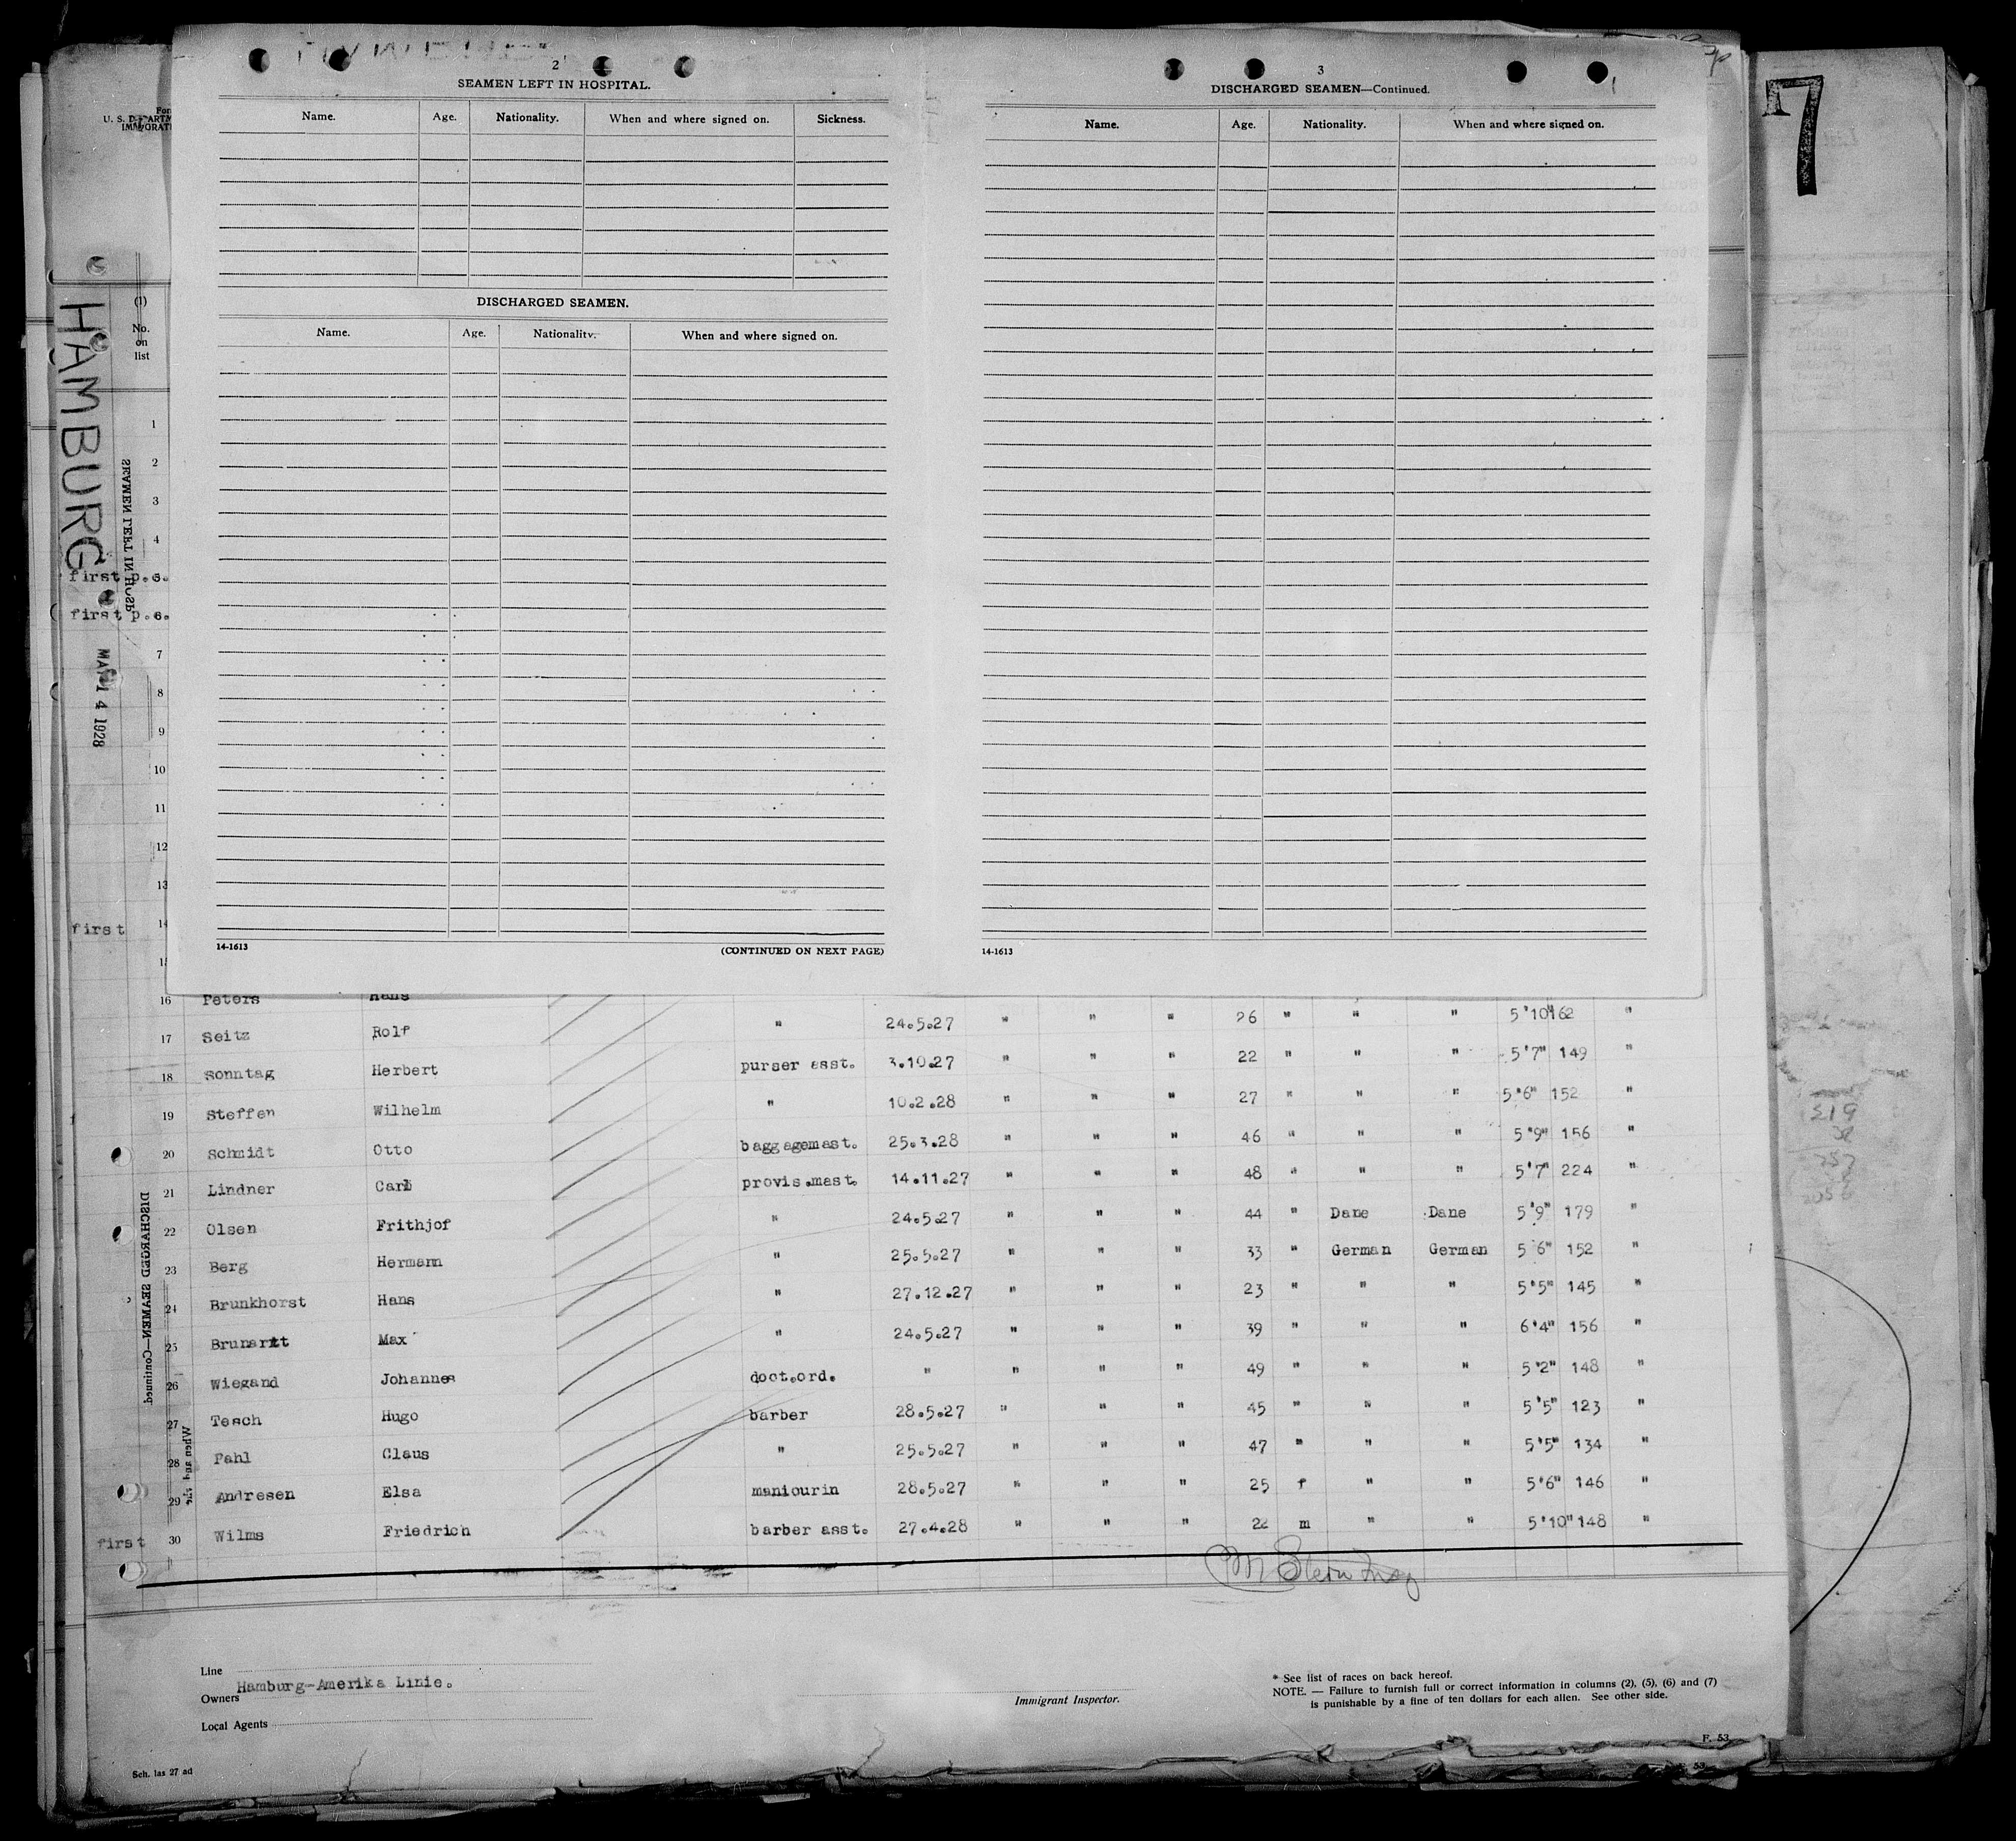 2
SEAMEN LEFT IN HOSPITAL.
Name. Age. Nationality. When and where signed on. Sickness.
DISCHARGED SEAMEN.
Name. Age. Nationality. When and where signed on.
14-1613 (CONTINUED ON NEXT PAGE)
3
DISCHARGED SEAMEN—Continued.
Name. Age. Nationality. When and where signed on.
14-1613
7
HAMBURG
MAY 14 1928
SEAMEN LEFT IN HOSP
DISCHARGED SEAMEN—Continued.
(1)
No.
on
list
1
2
3
4
first p.c.
first p.c.
7
8
9
10
11
12
13
first 14
16 Peters Hans
17 Seitz Rolf " 24.5.27 " " " 26 " " " 5'10" 162 "
18 Sonntag Herbert purser asst. 3.10.27 " " " 22 " " " 5'7" 149 "
19 Steffen Wilhelm " 10.2.28 " " " 27 " " " 5'6" 152 "
20 Schmidt Otto baggagemast. 25.3.28 " " " 46 " " " 5'9" 156 "
21 Lindner Carl provis.mast. 14.11.27 " " " 48 " " " 5'7" 224 "
22 Olsen Frithjof " 24.5.27 " " " 44 " Dane Dane 5'9" 179 "
23 Berg Hermann " 25.5.27 " " " 33 " German German 5'6" 152 "
24 Brunkhorst Hans " 27.12.27 " " " 23 " " " 5'5" 145 "
25 Max " 24.5.27 " " " 39 " " " 6'4" 156 "
26 Wiegand Johannes doct.ord. " " " " 49 " " " 5'2" 148 "
27 Tesch Hugo barber 28.5.27 " " " 45 " " " 5'5" 123 "
28 Pahl Claus " 25.5.27 " " " 47 " " " 5'5" 134 "
29 Andresen Elsa manicurin 28.5.27 " " " 25 f " " 5'6" 146 "
first 30 Wilms Friedrich barber asst. 27.4.28 " " " 22 m " " 5'10" 148 "
Line
Hamburg-Amerika Linie.
Owners
Local Agents
Immigrant Inspector.
* See list of races on back hereof.
NOTE. — Failure to furnish full or correct information in columns (2), (5), (6) and (7)
is punishable by a fine of ten dollars for each alien. See other side.
F. 53
Sch. las 27 ad